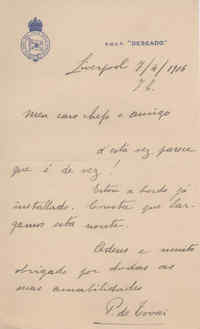 R.M.S.P. "DESEADO."
Liverpool 7/4/1916
Meu caro chefe e amigo
D'esta vez parece
que é de vez!
Estou a bordo já
installado. Consta que lar-
gamos esta noute.
Adeus e muito
obrigado por todas as
suas amabilidades
P. de Tovar